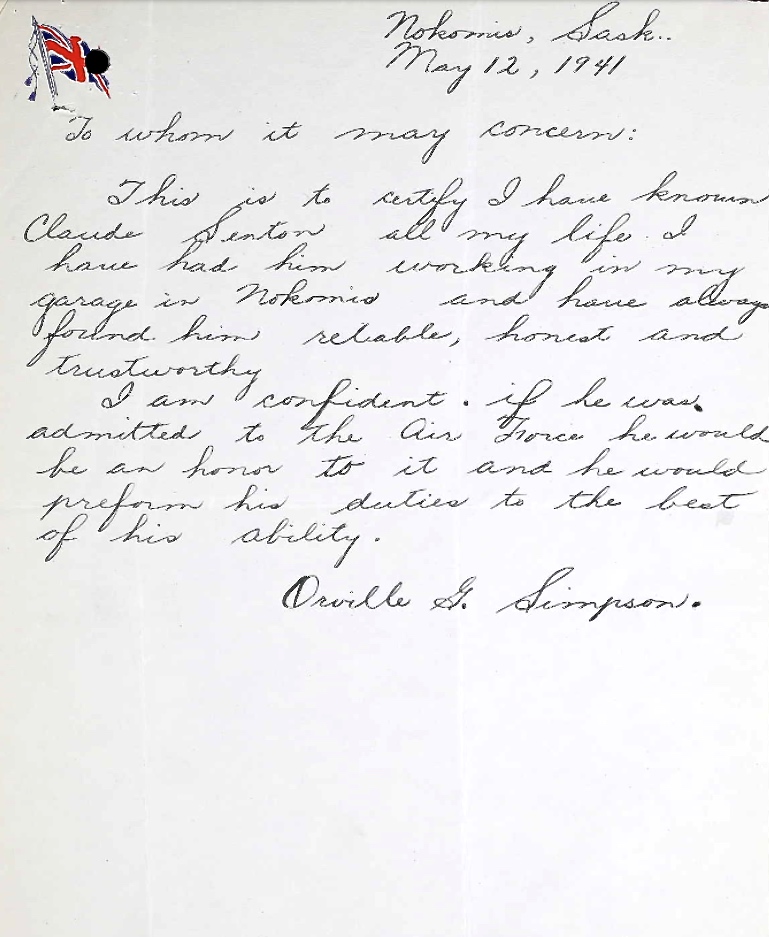 Nokomis, Sask..
May 12, 1941
To whom it may concern:
This is to certify I have known
Claude Senton all my life. I
have had him working in my
garage in Nokomis and have always
found him reliable, honest and
trustworthy
I am confident. if he was.
admitted to the Air Force he would
be an honor to it and he would
preform his duties to the best
of his ability.
Orville G. Simpson.